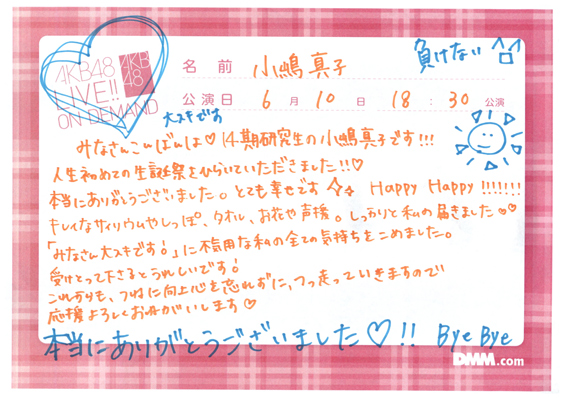 AKB48
LIVE!!
ON DEMAND
AKB
48
名前 小嶋真子
負けない
公演日 6月10日 18:30公演
大スキです
みなさんこんばんは♡14期研究生の小嶋真子です!!!
人生初めての生誕祭をひらいていただきました!!♡
本当にありがとうございました。とても幸せです Happy Happy!!!!!!!
キレイなサイリウムやしっぽ、タオル、お花や声援。しっかりと私の届きました♡♡
「みなさん大スキです!」に不気用な私の全ての気持ちをこめました。
受けとって下さるとうれしいです!
これからも、つねに向上心を忘れずに、つっ走っていきますので
応援よろしくお母がいします♡
本当にありがとうございました♡!! Bye Bye
DMM.com